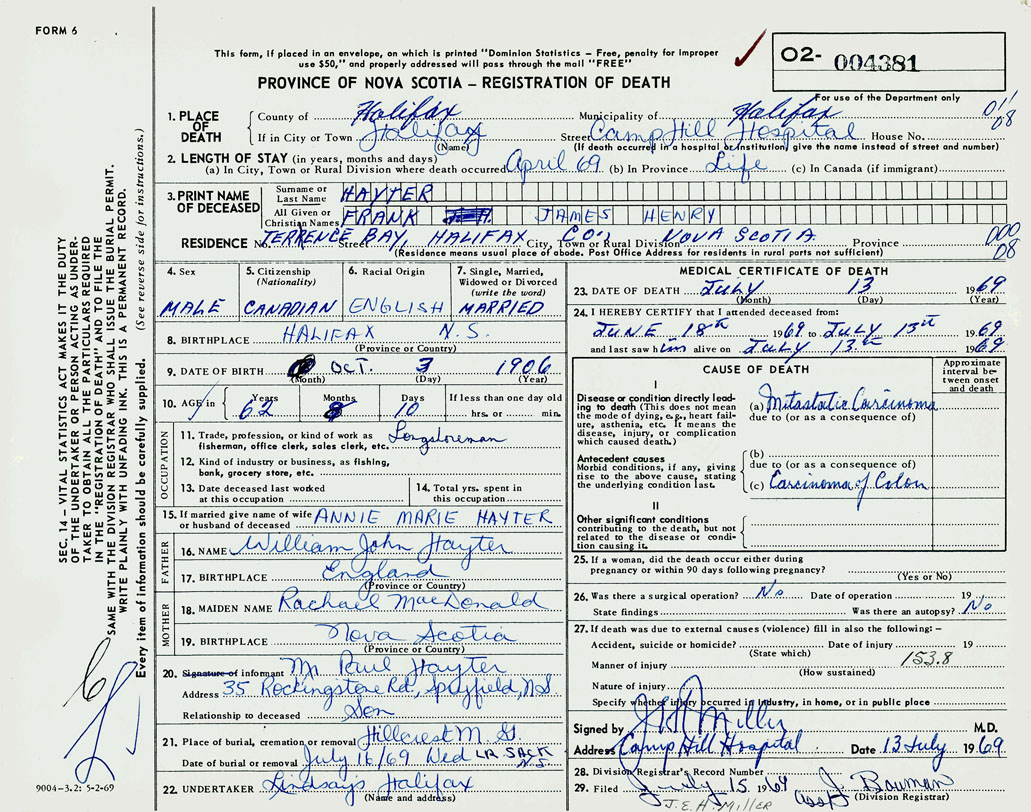 FORM 6
This form, if placed in an envelope, on which is printed "Dominion Statistics – Free, penalty for improper
use $50," and properly addressed will pass through the mail "FREE"
PROVINCE OF NOVA SCOTIA – REGISTRATION OF DEATH
O2- 004381
For use of the Department only
011
08
1. PLACE OF DEATH
County of Halifax Municipality of Halifax
If in City or Town Halifax Street Camp Hill Hospital House No.
(Name) (If death occurred in a hospital or institution, give the name instead of street and number)
2. LENGTH OF STAY (in years, months and days)
(a) In City, Town or Rural Division where death occurred April 69 (b) In Province Life (c) In Canada (if immigrant)
3. PRINT NAME OF DECEASED
Surname or Last Name HAYTER
All Given or Christian Names FRANK JAMES HENRY
RESIDENCE No. TERRENCE BAY, HALIFAX CO., NOVA SCOTIA
Street City, Town or Rural Division Province
000
08
(Residence means usual place of abode. Post Office Address for residents in rural parts not sufficient)
4. Sex
MALE
5. Citizenship
(Nationality)
CANADIAN
6. Racial Origin
ENGLISH
7. Single, Married,
Widowed or Divorced
(write the word)
MARRIED
8. BIRTHPLACE HALIFAX N.S.
(Province or Country)
9. DATE OF BIRTH OCT. 3 1906
(Month) (Day) (Year)
10. AGE in Years Months Days If less than one day old
62 8 10 hrs. or min.
OCCUPATION
11. Trade, profession, or kind of work as
fisherman, office clerk, sales clerk, etc. Longshoreman
12. Kind of industry or business, as fishing,
bank, grocery store, etc.
13. Date deceased last worked
at this occupation
14. Total yrs. spent in
this occupation
15. If married give name of wife
or husband of deceased ANNIE MARIE HAYTER
FATHER
16. NAME William John Hayter
17. BIRTHPLACE England
(Province or Country)
MOTHER
18. MAIDEN NAME Rachael MacDonald
19. BIRTHPLACE Nova Scotia
(Province or Country)
20. Signature of informant Mr. Paul Hayter
Address 35 Rockingstone Rd., Spryfield, N.S.
Relationship to deceased Son
21. Place of burial, cremation or removal Hillcrest M. Gd.
Date of burial or removal July 16/69 Wed LR SACK N.S.
22. UNDERTAKER Lindsays Halifax
(Name and address)
MEDICAL CERTIFICATE OF DEATH
23. DATE OF DEATH JULY 13 1969
(Month) (Day) (Year)
24. I HEREBY CERTIFY that I attended deceased from:
JUNE 18th 1969 to JULY 13th 1969
and last saw him alive on JULY 13th 1969
CAUSE OF DEATH
Approximate
interval be-
tween onset
and death
I
Disease or condition directly lead-
ing to death (This does not mean
the mode of dying, e.g., heart fail-
ure, asthenia, etc. It means the
disease, injury, or complication
which caused death.)
(a) Mitastatic Carcinoma
due to (or as a consequence of)
Antecedent causes
Morbid conditions, if any, giving
rise to the above cause, stating
the underlying condition last.
(b)
due to (or as a consequence of)
(c) Carcinoma of Colon
II
Other significant conditions
contributing to the death, but not
related to the disease or condi-
tion causing it.
25. If a woman, did the death occur either during
pregnancy or within 90 days following pregnancy?
(Yes or No)
26. Was there a surgical operation? No Date of operation 19
State findings Was there an autopsy? No
27. If death was due to external causes (violence) fill in also the following: –
Accident, suicide or homicide? Date of injury 19
(State which) 153.8
Manner of injury
(How sustained)
Nature of injury
Specify whether injury occurred in Industry, in home, or in public place
Signed by Miller M.D.
Address Camp Hill Hospital Date 13 July 1969
28. Division Registrar's Record Number
29. Filed July 15 1969 asst J. Bowman
(Division Registrar)
J.E.H. MILLER
SEC. 14 – VITAL STATISTICS ACT MAKES IT THE DUTY
OF THE UNDERTAKER OR PERSON ACTING AS UNDER-
TAKER TO OBTAIN ALL THE PARTICULARS REQUIRED
IN THE "REGISTRATION OF DEATH" AND TO FILE THE
SAME WITH THE DIVISION REGISTRAR WHO SHALL ISSUE THE BURIAL PERMIT.
WRITE PLAINLY WITH UNFADING INK. THIS IS A PERMANENT RECORD.
Every item of information should be carefully supplied. (See reverse side for instructions.)
9004-3.2: 5-2-69